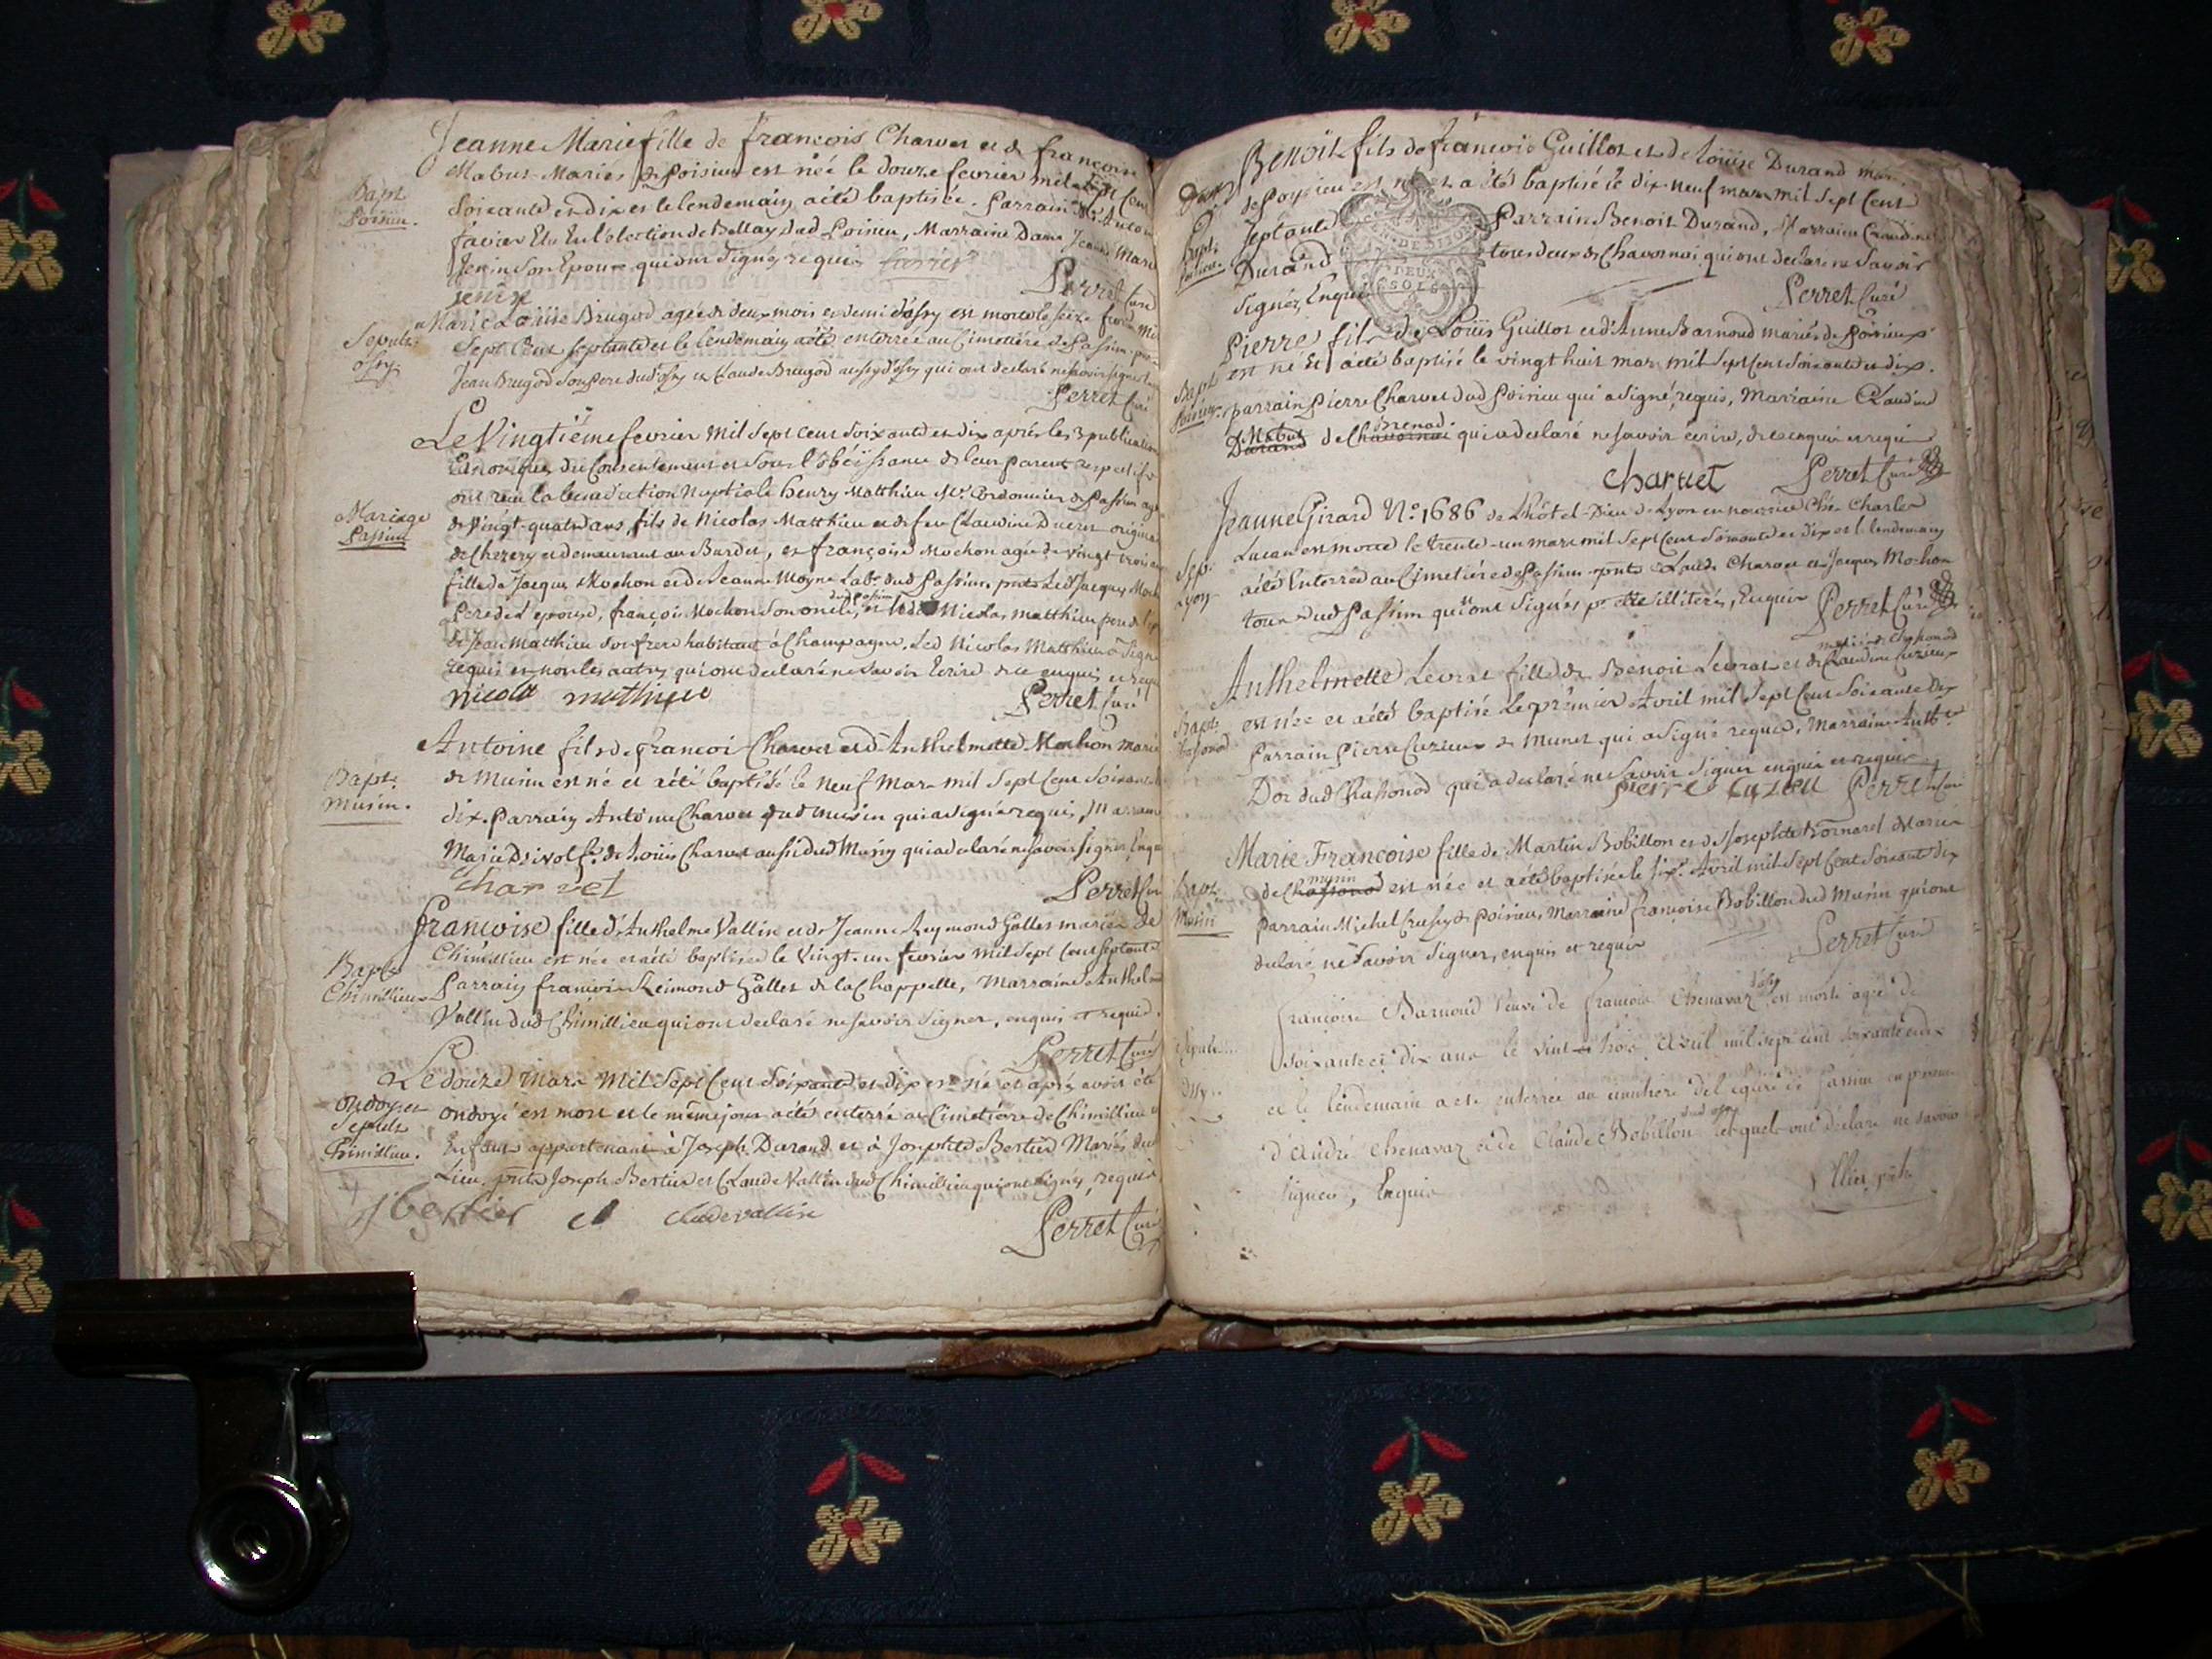 Jeanne Marie fille de françois Charvet et de françoise
Mabut Mariés de Poisieu est née le douze fevrier mil Sept Cent
Soixante et dix et le lendemain a été baptisée. Parrain
Bapt.
Poisieu.
en l'élection de Bellay dud Poisieu, Marraine Dame Jeanne Marie
Jenin son Epouse qui ont signés requis
Perret Curé
jenin
Marie Loüise Brugod agée de deux mois et demi d'ossy est morte le seize fevrier mil
Sept Cent septante et le lendemain a été enterrée au Cimetière de Passin
Sepult.
ossy.
Jean Brugod son Pere dud ossy et Claude Brugod aussy d'ossy qui ont declaré ne savoir signer
Perret Curé
Le Vingtième fevrier Mil Sept Cent Soixante et dix après les 3 publications
Canoniques du Consentement et sous l'obéissance de leur parents respectifs
ont reçu la benediction Nuptiale henry Matthieu Me. Cordonnier de Passin agé
Mariage
Passin
de vingt-quatre ans, fils de Nicolas Matthieu et de feu Claudine Ducret originaire
de Chezery et demeurant au Burdet, et françoise Mochon agée de vingt trois ans
fille de Jacques Mochon et de Jeanne Moyne Labr. dud Passin. pnts Led Jacques Mochon
Pere de l'epouse, françois Mochon son oncle, dud passin et led Nicolas Matthieu pere de l'ep
et Jean Matthieu son frere habitant à Champagne. Led Nicolas Matthieu a signé
requis et non les autres qui ont declaré ne savoir Ecrire de ce enquis et requis
nicolas mathieu Perret Curé
Antoine fils de françois Charvet et d'Anthelmette Mochon mariés
de Musin est né et a été baptisé le Neuf Mars mil Sept Cent Soixante et
Bapt.
Musin.
dix. Parrain Antoine Charvet dud Musin qui a signé requis, Marraine
Marie Drivol fe. de Loüis Charvet aussi dud Musin qui a declaré ne savoir signer, Enquis
Charvet Perret Curé
françoise fille d'Anthelme Vallin et de Jeanne Reymond Gallet mariés de
Chimillieu est née et a été baptisée le Vingt-un fevrier Mil Sept Cent Septante
Bapt.
Chimillieu
Parrain françois Reimond Gallet de la Chappelle, Marraine Anthelme
Vallin dud Chimillieu qui ont declaré ne savoir Signer, enquis et requis.
Perret Curé
Le douze Mars Mil Sept Cent Soixante et dix est né et après avoir été
ondoyé est mort et le même jour a été enterré au Cimetière de Chimillieu un
ondoyé et
Sepult.
Chimillieu.
Enfant appartenant à Joseph Durand et à Josephte Bertier Mariés dud
Lieu. pnts Joseph Bertier et Claude Vallin dud Chimillieu qui ont signés, requis
j bertier et claude vallin
Perret Curé
Benoit fils de françois Guillot et de Loüise Durand mariés
de Poysieu est né et a été baptisé le dix-neuf mars mil Sept Cent
Septante Parrain Benoit Durand, Marraine Claudine
Bapt.
Durand tous deux de Chavornai qui ont declaré ne Savoir
Signer, Enquis Perret Curé
Pierre fils de Loüis Guillot et d'Anne Barnoud mariés de Poisieux
est né et a été baptisé le vingt huit mars mil Sept Cent Soixante et dix.
Bapt.
Poisieu.
parrain Pierre Charvet dud Poisieu qui a signé, requis, Marraine Claudine
Durand Mabut de Chavornai Brenod qui a declaré ne savoir écrire, de ce enquise et requise
charuet Perret Curé
Jeanne Girard N° 1686 de L'hôtel-Dieu de Lyon en nourrice Chès Charles
Lucan est morte le trente-un mars mil Sept Cent Soixante et dix et le lendemain
Sep.
Lyon
a été Enterrée au Cimetière de Passin. pnts Claude Charvet et Jacques Mochon
tous dud Passin qui n'ont Signés pr. être illiterés, Enquis Perret Curé
Anthelmette Levrat fille de Benoit Levrat et de Claudine Cuzieux mariés de Chassonod
est née et a été baptisé Le premier Avril mil Sept Cent Soixante Dix
Bapt.
Chassonod
Parrain Pierre Cuzieux de Munet qui a Signé requis, Marraine Anthte.
Dor dud Chassonod qui a declaré ne Savoir Signer enquise et requise
pierre Cuzieu Perret Curé
Marie-Françoise fille de Martin Bobillon et de Josephte Bornarel Mariés
de Chassonod musin est née et a été baptisée le six Avril mil Sept Cent Soixante Dix
Bapt.
Musin
Parrain Michel de Poisieu, Marraine françoise Bobillon dud Musin qui ont
declaré ne Savoir Signer, enquis et requis Perret Curé
françoise Barnoud Veuve de françois Chenavaz d'ossy est morte agée de
soixante et dix ans le vint et trois avril mil sept cent soixante et dix
Sepult.
ossy
et le lendemain a été enterrée au cimitiere de l'eglise de Passin en presence
d'andré Chenavaz et de Claude Bobillon dud ossy lesquels ont déclaré ne savoir
signer, Enquis